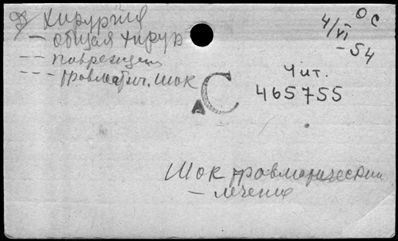 Хирургия
— общая хирур
-- поврежден
--- травматич. шок
ОС
4/VI
-54
Чит.
465755
АС
Шок травматический
— лечение